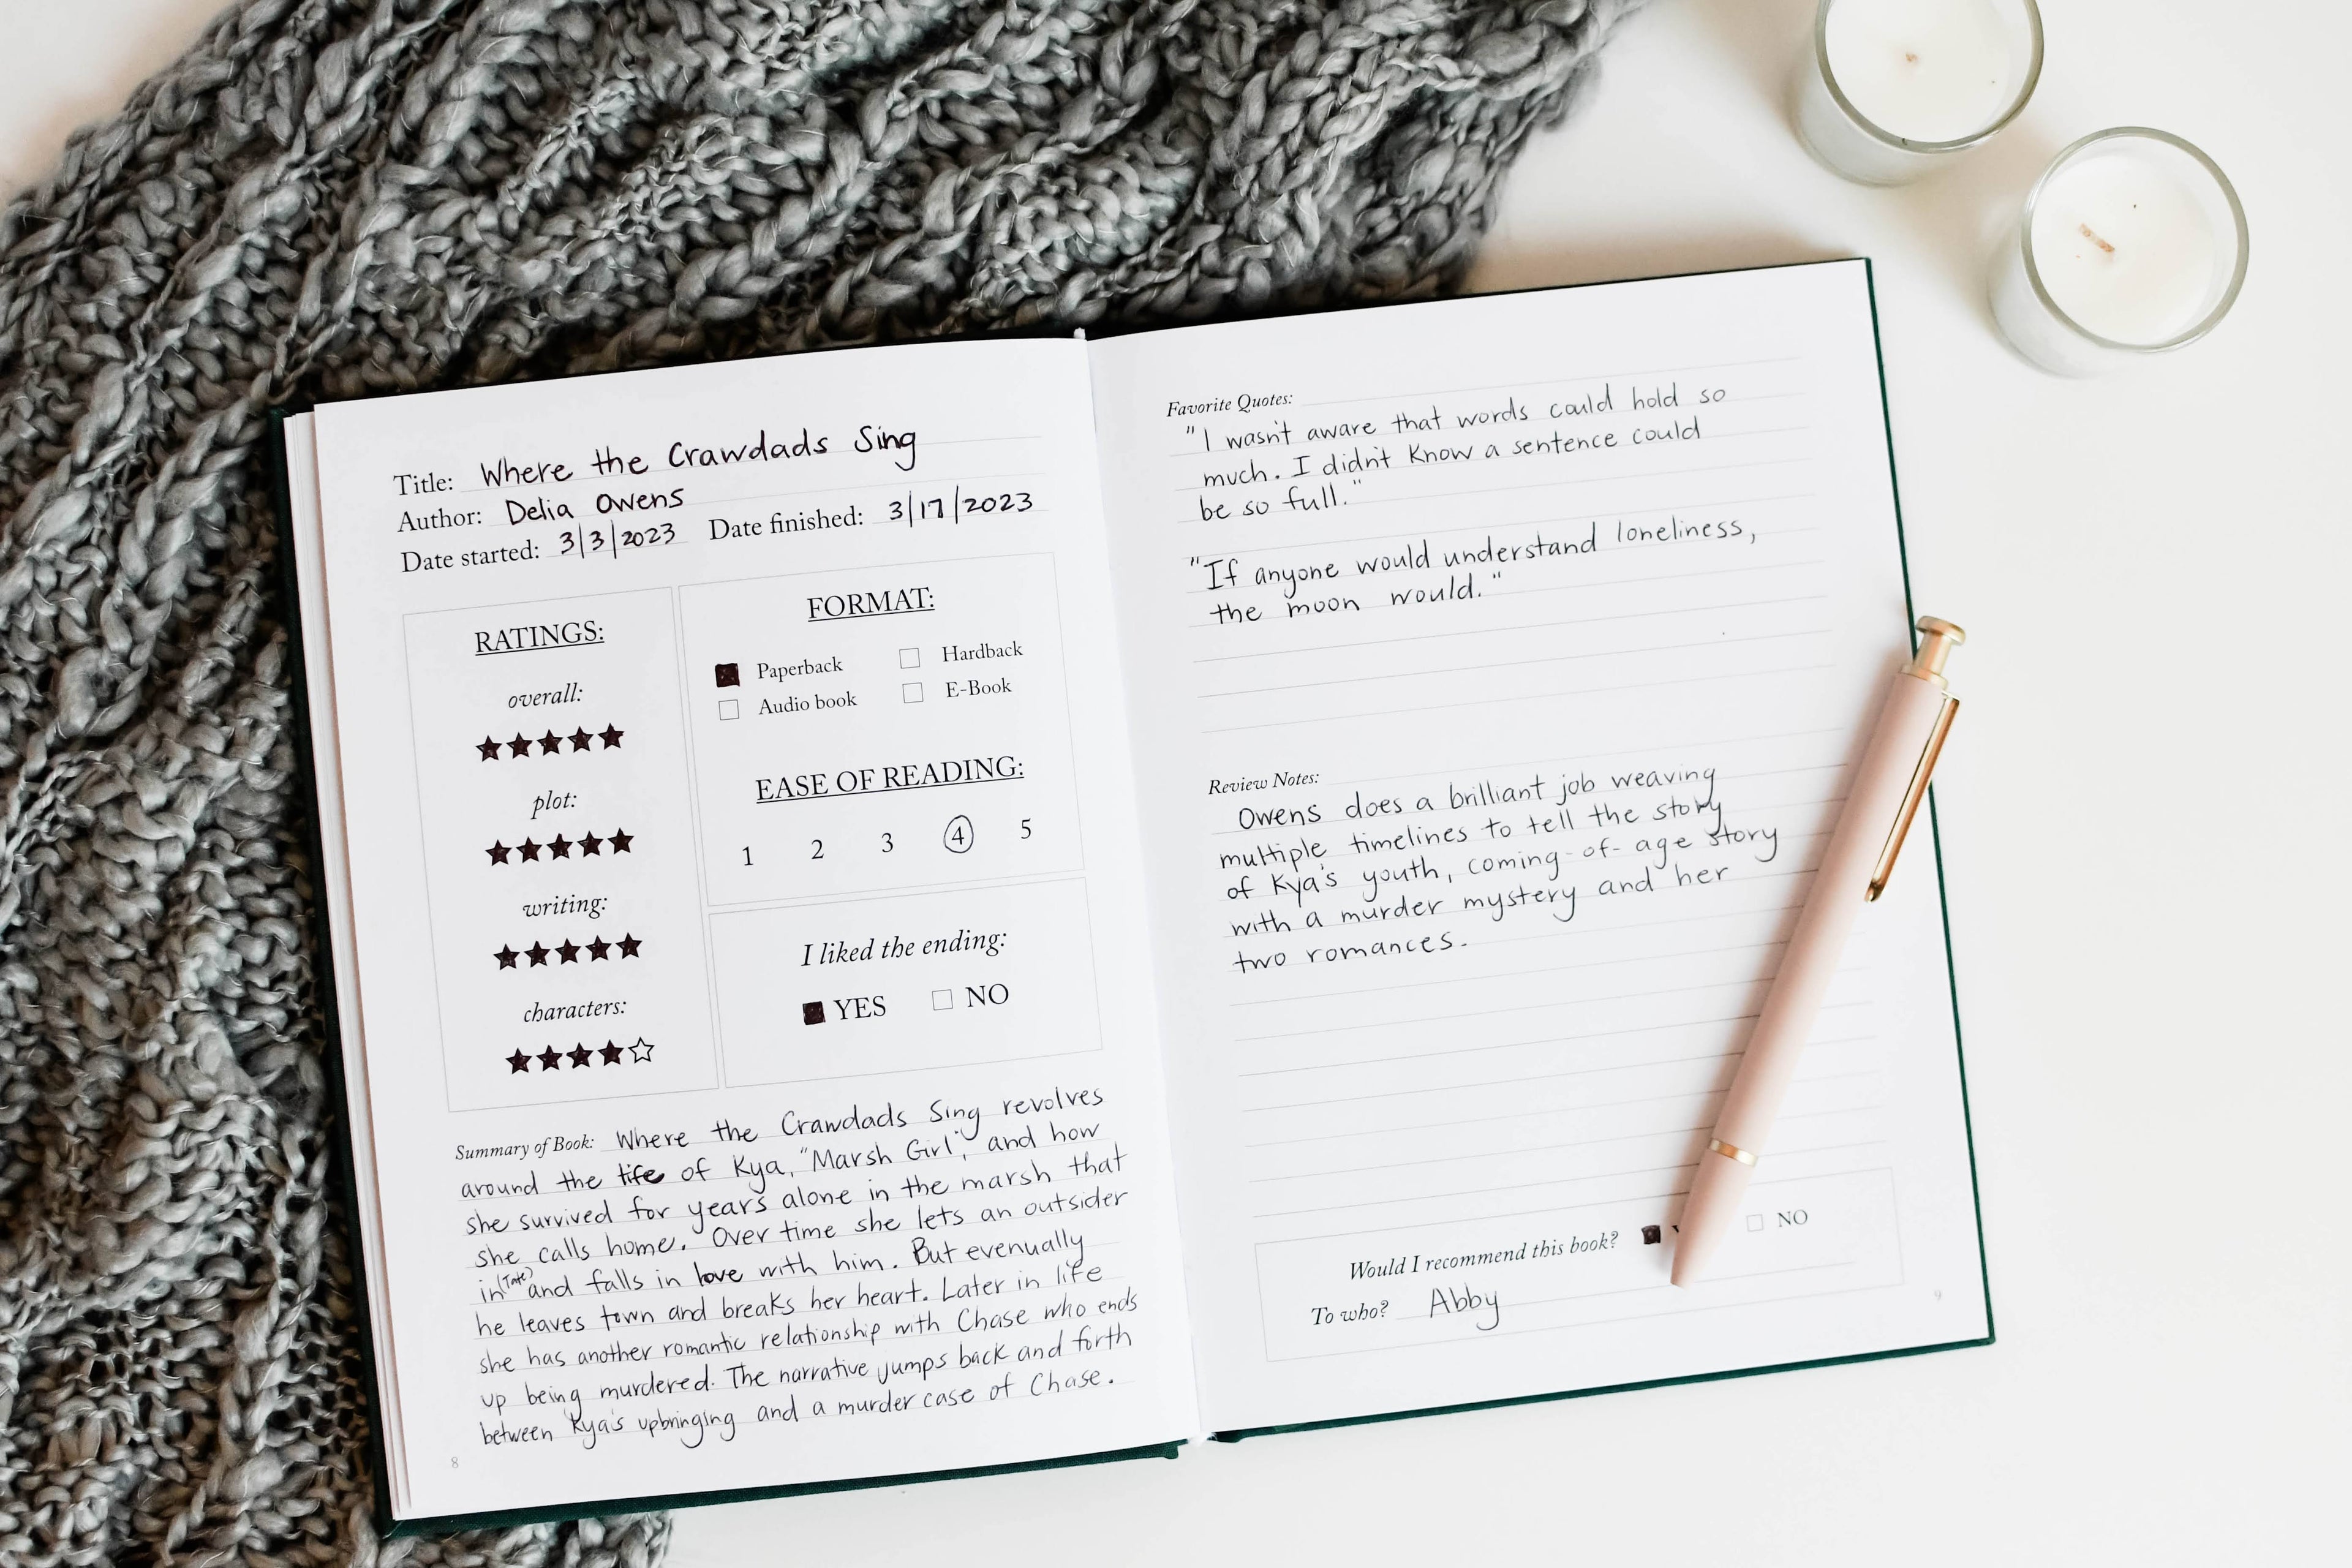 Title: Where the Crawdads Sing
Author: Delia Owens
Date started: 3/3/2023 Date finished: 3/17/2023
RATINGS:
overall:
★★★★★
plot:
★★★★★
writing:
★★★★★
characters:
★★★★☆
FORMAT:
Paperback Hardback
Audio book E-Book
EASE OF READING:
1 2 3 4 5
I liked the ending:
YES NO
Summary of Book: Where the Crawdads Sing revolves
around the life of Kya, "Marsh Girl", and how
she survived for years alone in the marsh that
she calls home. Over time she lets an outsider
in (Tate) and falls in love with him. But evenually
he leaves town and breaks her heart. Later in life
she has another romantic relationship with Chase who ends
up being murdered. The narrative jumps back and forth
between Kya's upbringing and a murder case of Chase.
8
Favorite Quotes:
"I wasn't aware that words could hold so
much. I didn't know a sentence could
be so full."
"If anyone would understand loneliness,
the moon would."
Review Notes:
Owens does a brilliant job weaving
multiple timelines to tell the story
of Kya's youth, coming-of-age story
with a murder mystery and her
two romances.
Would I recommend this book? NO
To who? Abby
9